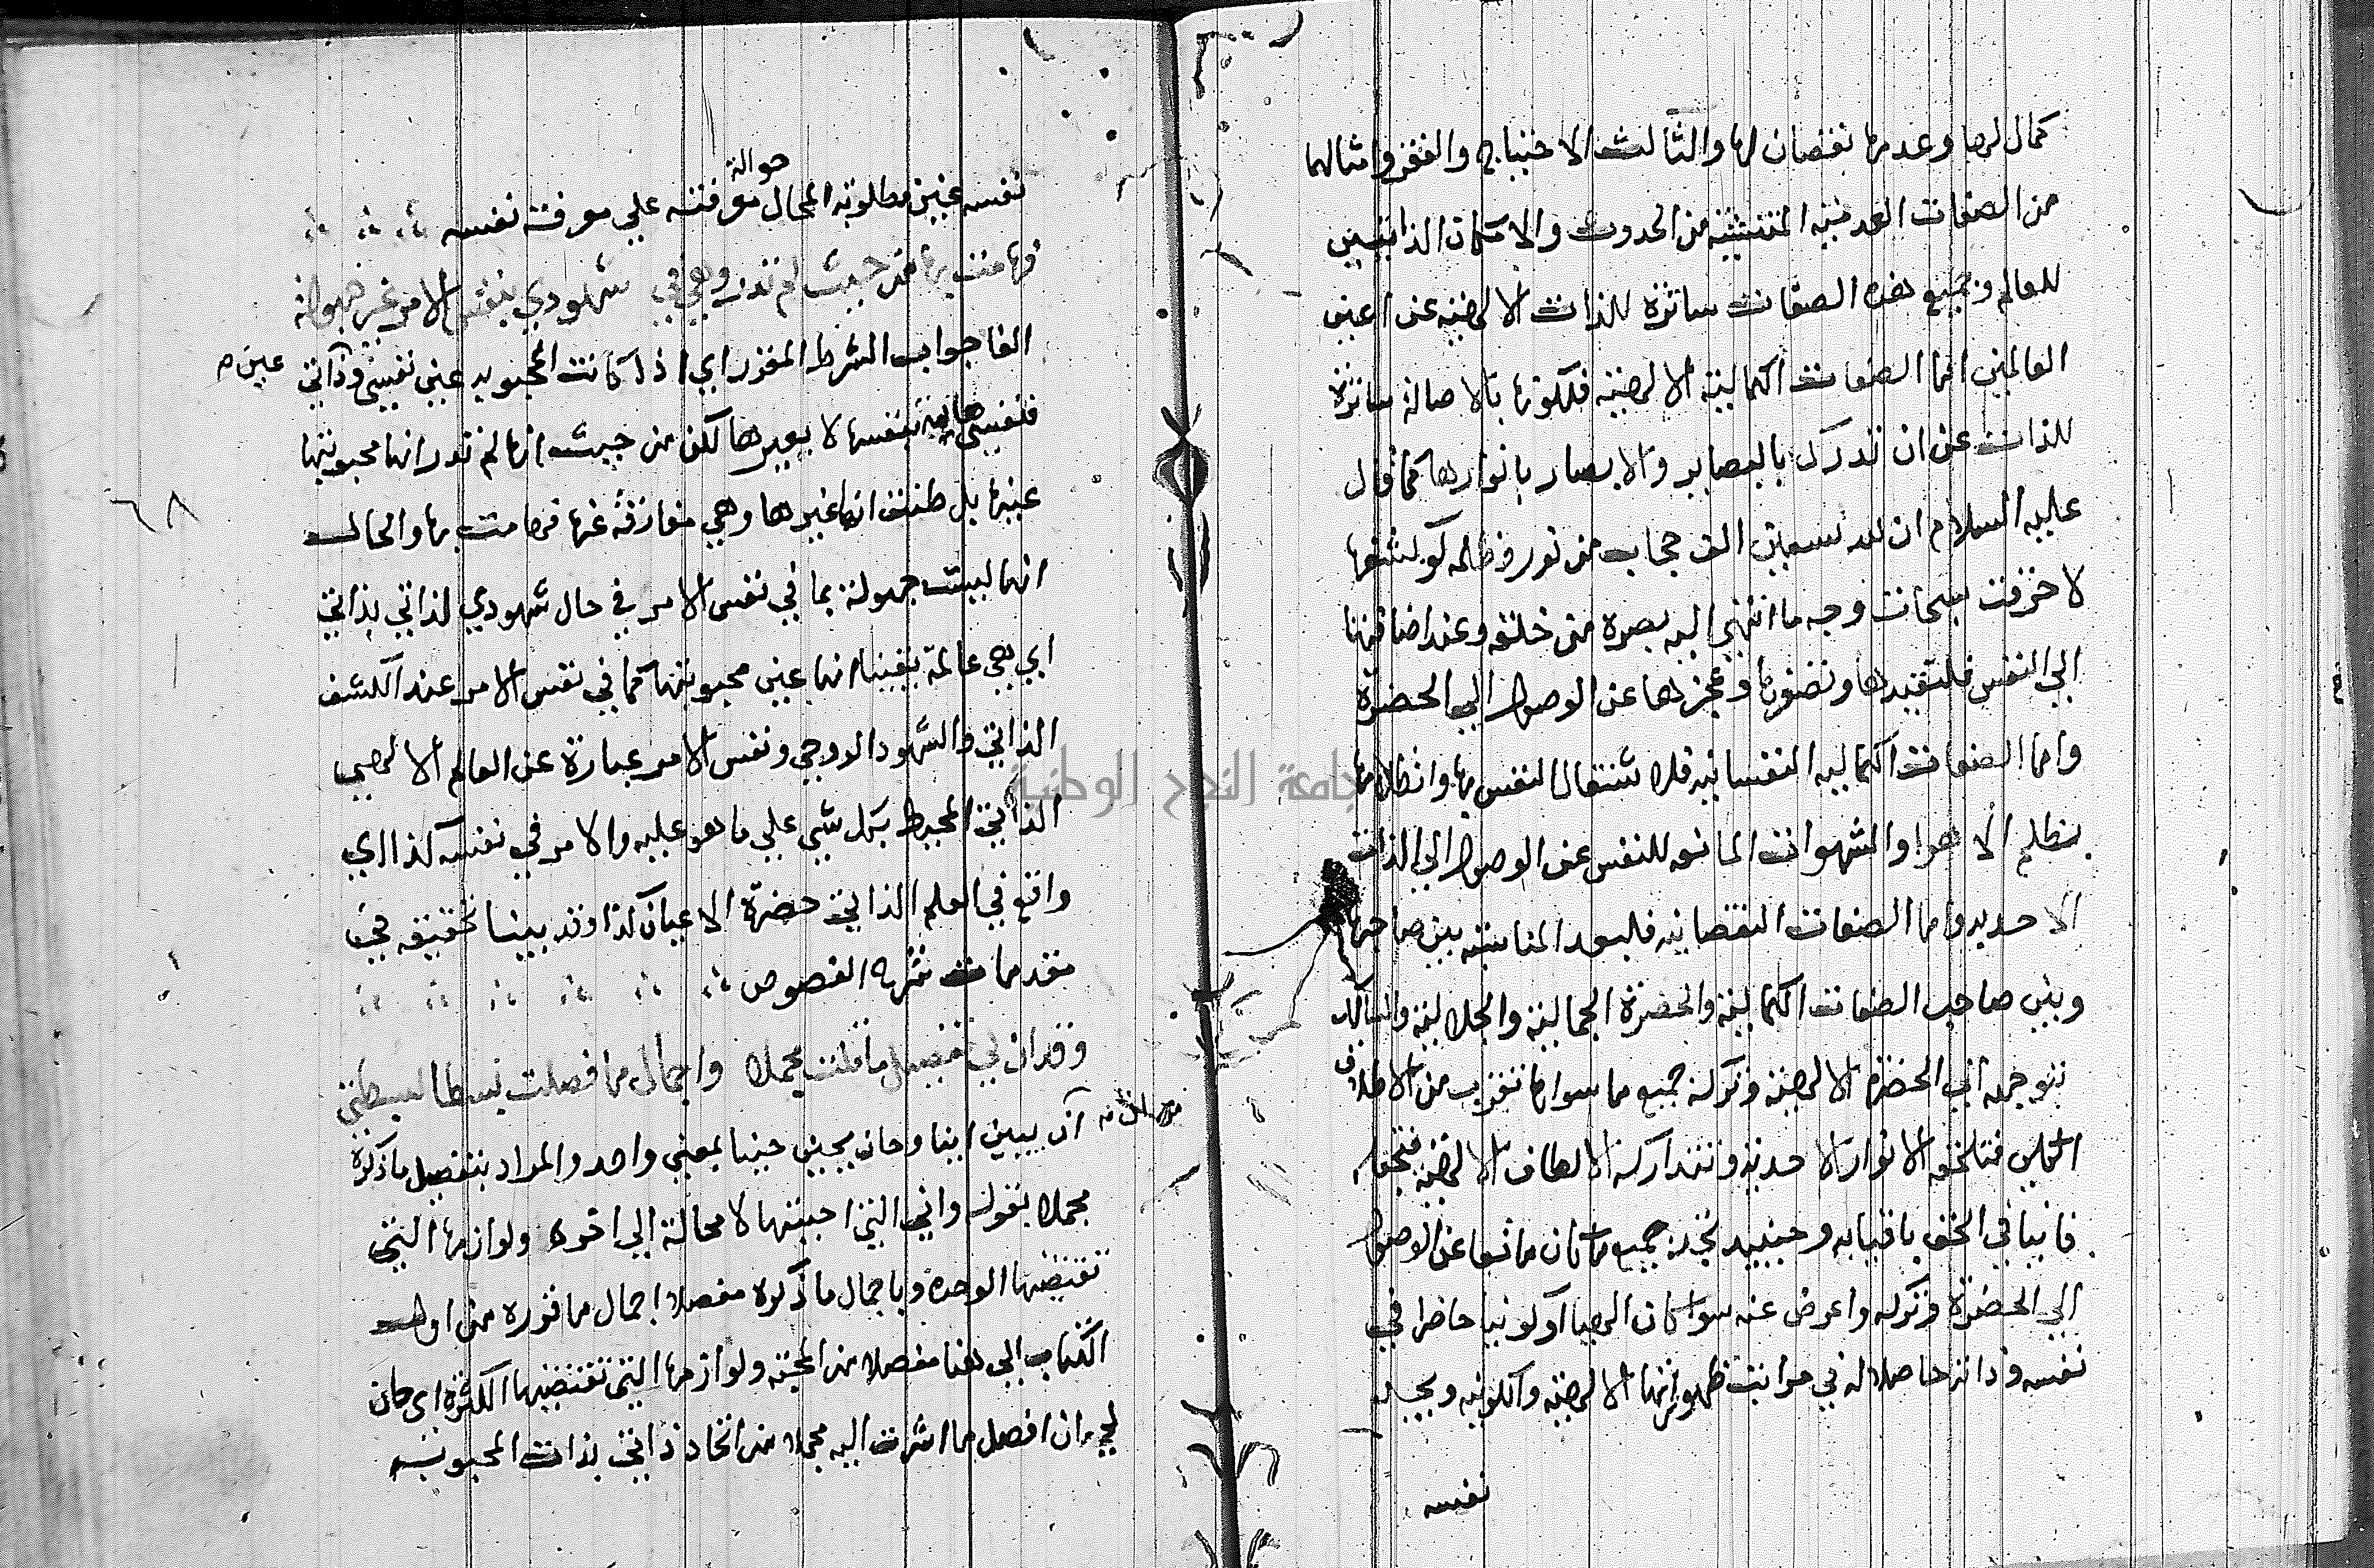 كمال لها وعدمها نقصان لها والثالث الاحتياج والفقر وامثالهما
من الصفات العدمية المنتشئة من الحدوث والامكان الذاتيين
للعالم وجميع هذه الصفات ساترة للذات الالهية عن اعين
العالمين اما الصفات الكمالية الالهية فلكونها بالاصالة ساترة
للذات عن ان تدرك بالبصاير والابصار بانوارها كما قال
عليه السلام ان لله سبعين الف حجاب من نور وظلمه لو كشفها
لاحرقت سبحات وجه ما انتهي اليه بصره من خلقه وعند اضافتها
الي النفس فلتقيدها وعجزها عن الوصول الي الحضرة
واما الصفات الكماليه النفسانيه فلاشتغال النفس بها وانظلامها
بظلم الاهوا والشهوات المانعه للنفس عن الوصول الي الذات
الاحديه واما الصفات النقصانيه فلبعد المناسبة بين صاحبها
وبين صاحب الصفات الكمالية والحضرة الجمالية والجلالية والسالك
بتوجهه الي الحضرة الالهية وتركه جميع ما سواها تقرب من الاطلاق
فتلحقه الانوار الاحدية وتتداركه الالطاف الالهية فتجعله
فانيا في الحق باقيا به وحينيد يجد جميع ما كان مانعا عن الوصول
الي الحضرة وتركه واعرض عنه سوا كان الهيا او كونيا حاضرا في
نفسه وذاته حاصلا له في مراتب ظهوراتها الالهية والكونيه ويجد
نفسه
نفسه عين مطلوبه المحال معرفته علي معرفت نفسه
حوالة
فهامت بها من حيث لم تدر وهي في شهودي بنفس الامر غير جهولة
الفا جواب الشرط المقدر اي اذا كانت المحبوبه عين نفسي وذاتي
عين
فنفسي هايمة بنفسها لا بغيرها لكن من حيث انها لم تدر انها محبوبتها
عينها بل ظنت انها غيرها وهي مفارقة عنها فهامت بها والحال
انها ليست جهولة بما في نفس الامر في حال شهودي لذاتي بذاتي
اي هي عالمة يقينا انها عين محبوبتها كما في نفس الامر عند الكشف
الذاتي والشهود الروحي ونفس الامر عبارة عن العالم الالهي
الذاتي المحيط بكل شي علي ما هو عليه والامر في نفسه كذا اي
واقع في العلم الذاتي حضرة الاعيان كذا وقد بينا تحقيقه في
مقدمات شرح الفصوص
وقد ان لي تفصيل ما قلت مجملا واجمال ما فصلت بسطا لبسطتي
آن يبين اينا وحان يحين حينا بمعني واحد والمراد بتفصيل ما ذكره
مجملا بقوله واني التي احببتها لا محالة الي اخره ولوازمها التي
تقتضيها الوحده وباجمال ما ذكره مفصلا اجمال ما قرره من اول
الكتاب الي هنا مفصلا من المحبه ولوازمها التي تقتضيها الكثرة اي حان
لي ان افصل ما اشرت اليه مجملا من اتحاد ذاتي بذات المحبوبه
٦٨
جامعة النجاح الوطنية